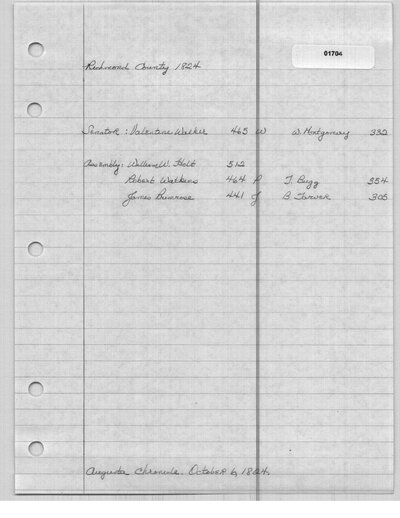 01704
Richmond County 1824
Senator: Valentine Walker 465 W W. Montgomery 332
Assembly: William W. Holt 512
Robert Watkins 464 P J. Bugg 354
James Primrose 441 J B. Tarver 305
Augusta Chronicle. October 6, 1824.